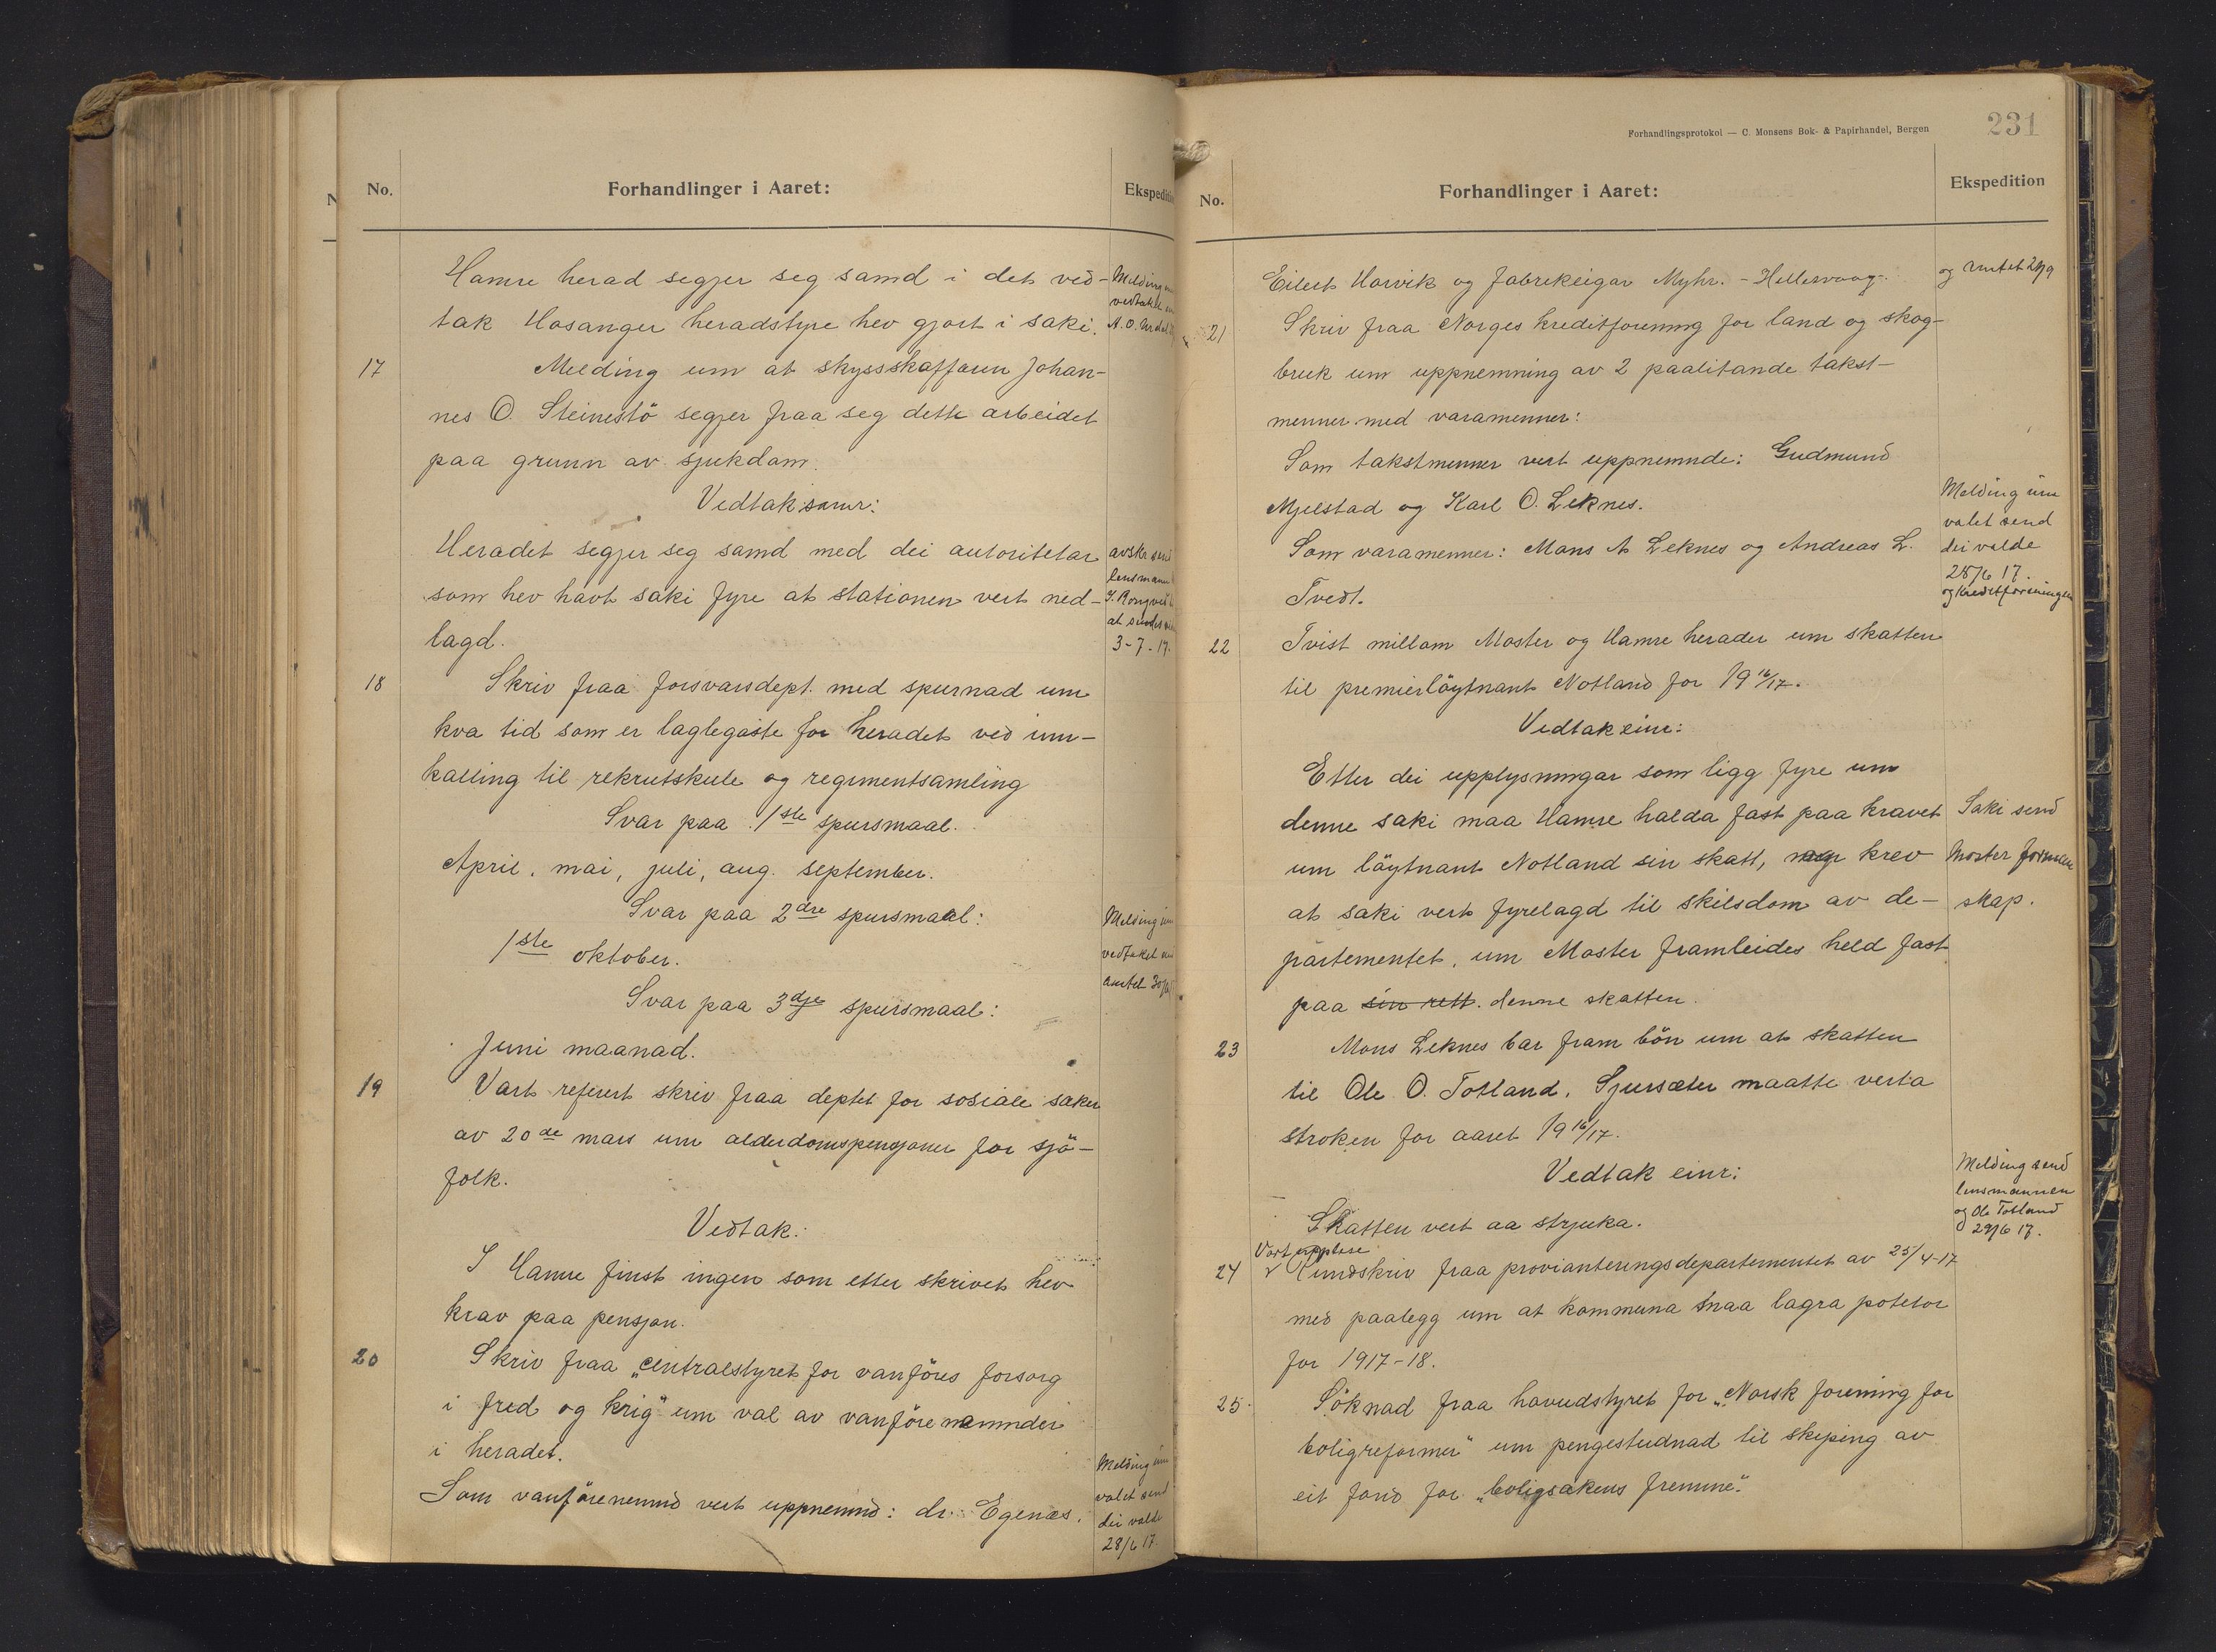 No.
Forhandlinger i Aaret:
Hamre herad segjer seg samd i det ved-
tak Hosanger heradstyre hev gjort i saki.
17
Melding um at skyssskaffaren Johan-
nes O. Steinestö segjer fraa seg dette arbeidet
paa grunn av sjukdom.
Vedtak samr:
Heradet segjer seg samd med dei autoritetar
som hev havt saki fyre at stationen vert ned-
lagd.
3-7-17.
18
Skriv fraa forsvarsdept. med spurnad um
kva tid som er laglegaste for heradet ved inn-
kalling til rekrutskule og regimentsamling
Svar paa 1ste spursmaal.
April, mai, juli, aug. september.
Svar paa 2dre spursmaal:
1ste oktober.
Svar paa 3dje spursmaal:
Juni maanad.
19
Vart referert skriv fraa deptet for sosiale saker
av 20de mars um alderdomspensjoner for sjö-
folk.
Vedtak:
I Hamre finst ingen som etter skrivet hev
krav paa pensjon.
20
Skriv fraa „centralstyret for vanföres forsorg
i fred og krig" um val av vanförenemnder
i heradet.
Som vanförenemnd vert uppnemnd: dr. Egenæs.
Melding um
valet send
dei valde
28/6 17.
Forhandlingsprotokol — C. Monsens Bok- & Papirhandel, Bergen
231
No.
Forhandlinger i Aaret:
Ekspedition
Eilert Horvik og fabrikeigar Myhr. - Hellesvaag.
21
Skriv fraa Norges kreditforening for land og skog-
bruk um uppnemning av 2 paalitande takst-
menner med varamenner:
Som takstmenner vert uppnemnde: Gudmund
Mjelstad og Karl O. Leknes.
Som varamenner: Mons A Leknes og Andreas L.
Tvedt.
Melding um
valet send
dei valde
28/6 17.
og Kreditforeningen
22
Tvist millom Moster og Hamre herader um skatten
til premierlöytnant Notland for 19 16/17.
Vedtak einr:
Etter dei upplysningar som ligg fyre um
denne saki maa Hamre halda fast paa kravet
um löytnant Notland sin skatt, krev
at saki vert fyrelagd til skilsdom av de-
partementet, um Moster framleides held fast
paa sin rett. denne skatten.
Saki send
Moster formann
skap.
23
Mons Leknes bar fram bön um at skatten
til Ole O. Totland, Sjursæter maatte verta
stroken for aaret 19 16/17.
Vedtak einr:
Skatten vert aa stryka.
Melding send
lensmannen
og Ole Totland
29/6 17.
24
Vart upplese
Rundskriv fraa provianteringsdepartementet av 25/4-17
med paalegg um at kommuna maa lagra poteter
for 1917-18.
25.
Söknad fraa hovudstyret for „Norsk forening for
boligreformer" um pengestudnad til skiping av
eit fond for „boligsakens fremme".